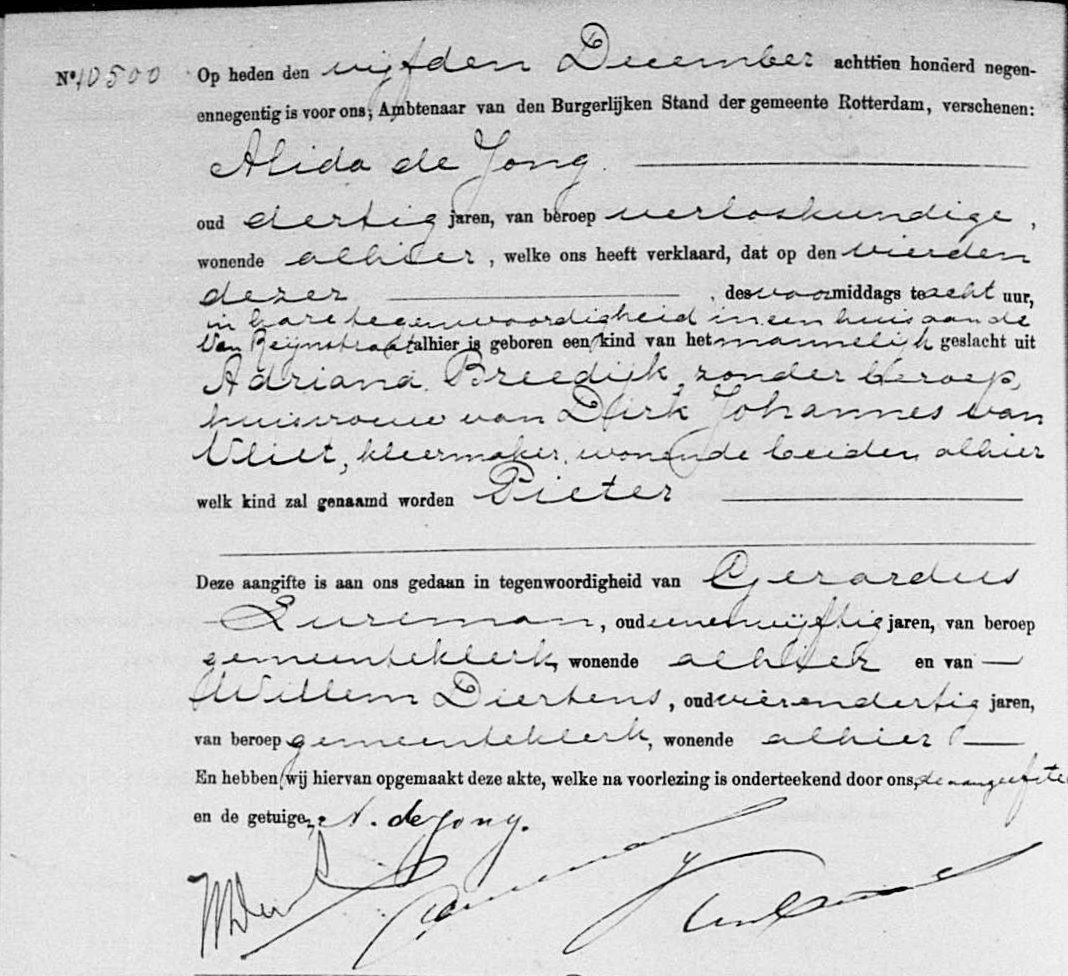 No. 10500 Op heden den vijfden December achttien honderd negen-
ennegentig is voor ons, Ambtenaar van den Burgerlijken Stand der gemeente Rotterdam, verschenen:
Alida de Jong.
oud dertig jaren, van beroep verloskundige,
wonende alhier, welke ons heeft verklaard, dat op den vierden
dezer, des voormiddags te acht uur,
in hare tegenwoordigheid in een huis aan de
Van Reijnstraat alhier is geboren een kind van het mannelijk geslacht uit
Adriana Breedijk, zonder beroep,
huisvrouw van Dirk Johannes van
Vliet, kleermaker, wonende beiden alhier
welk kind zal genaamd worden Pieter
Deze aangifte is aan ons gedaan in tegenwoordigheid van Gerardus
Lureman, oud eenenvijftig jaren, van beroep
gemeenteklerk, wonende alhier en van
Willem Diertens, oud vierendertig jaren,
van beroep gemeenteklerk, wonende alhier
En hebben wij hiervan opgemaakt deze akte, welke na voorlezing is onderteekend door ons, de aangeefster
en de getuigen. A. de Jong.